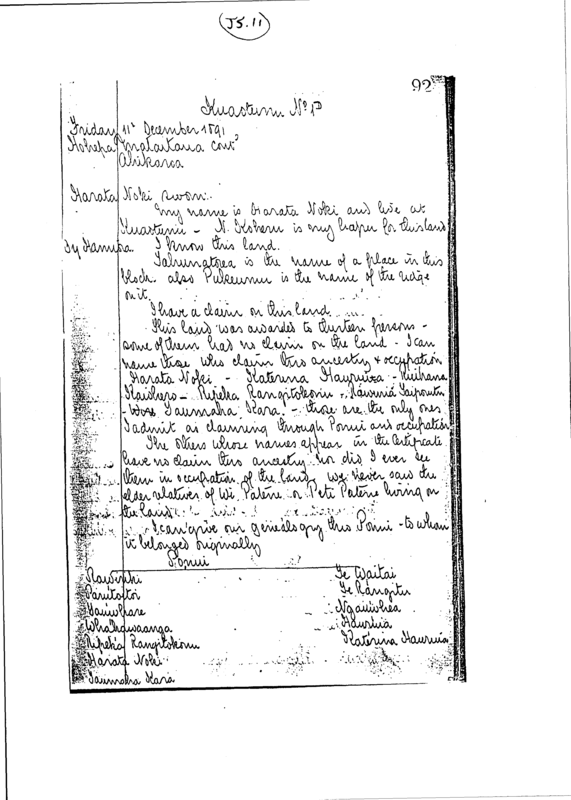 J5.11
92
Kuaotunu No 1D
Friday 11th December 1891
Hohepa Mataitaua cont'd
Ahikaroa
Harata Noki sworn:
My name is Harata Noki and live at
Kuaotunu - N. Kohem is my helper for this land
by Hamiora. I know this land.
is the name of a place in this
block. also Pukeumu is the name of the ridge
on it.
I have a claim on this land.
This land was awarded to thirteen persons -
some of them had no claim on the land - I can
name those who claim thro ancestry & occupation
Harata Noki - Katerina Hauruia -
- Ripeka Rangitokonu -
Taumaha Kara. - those are the only ones
I admit as claiming through Ponui and occupation
The others whose names appear in the Certificate
have no claim thro ancestry nor did I ever see
them in occupation of the land, we never saw the
elder relatives of Wi Patene or Peti Patene living on
the land
I can give our genealogy thro Ponui - to whom
it belonged originally
Ponui
Rawiriki Te Waitai
Te Rangitu
Ngawhea
Whakawaanga Hauruia
Ripeka Rangitokonu Katerina Hauruia
Harata Noki
Taumaha Kara